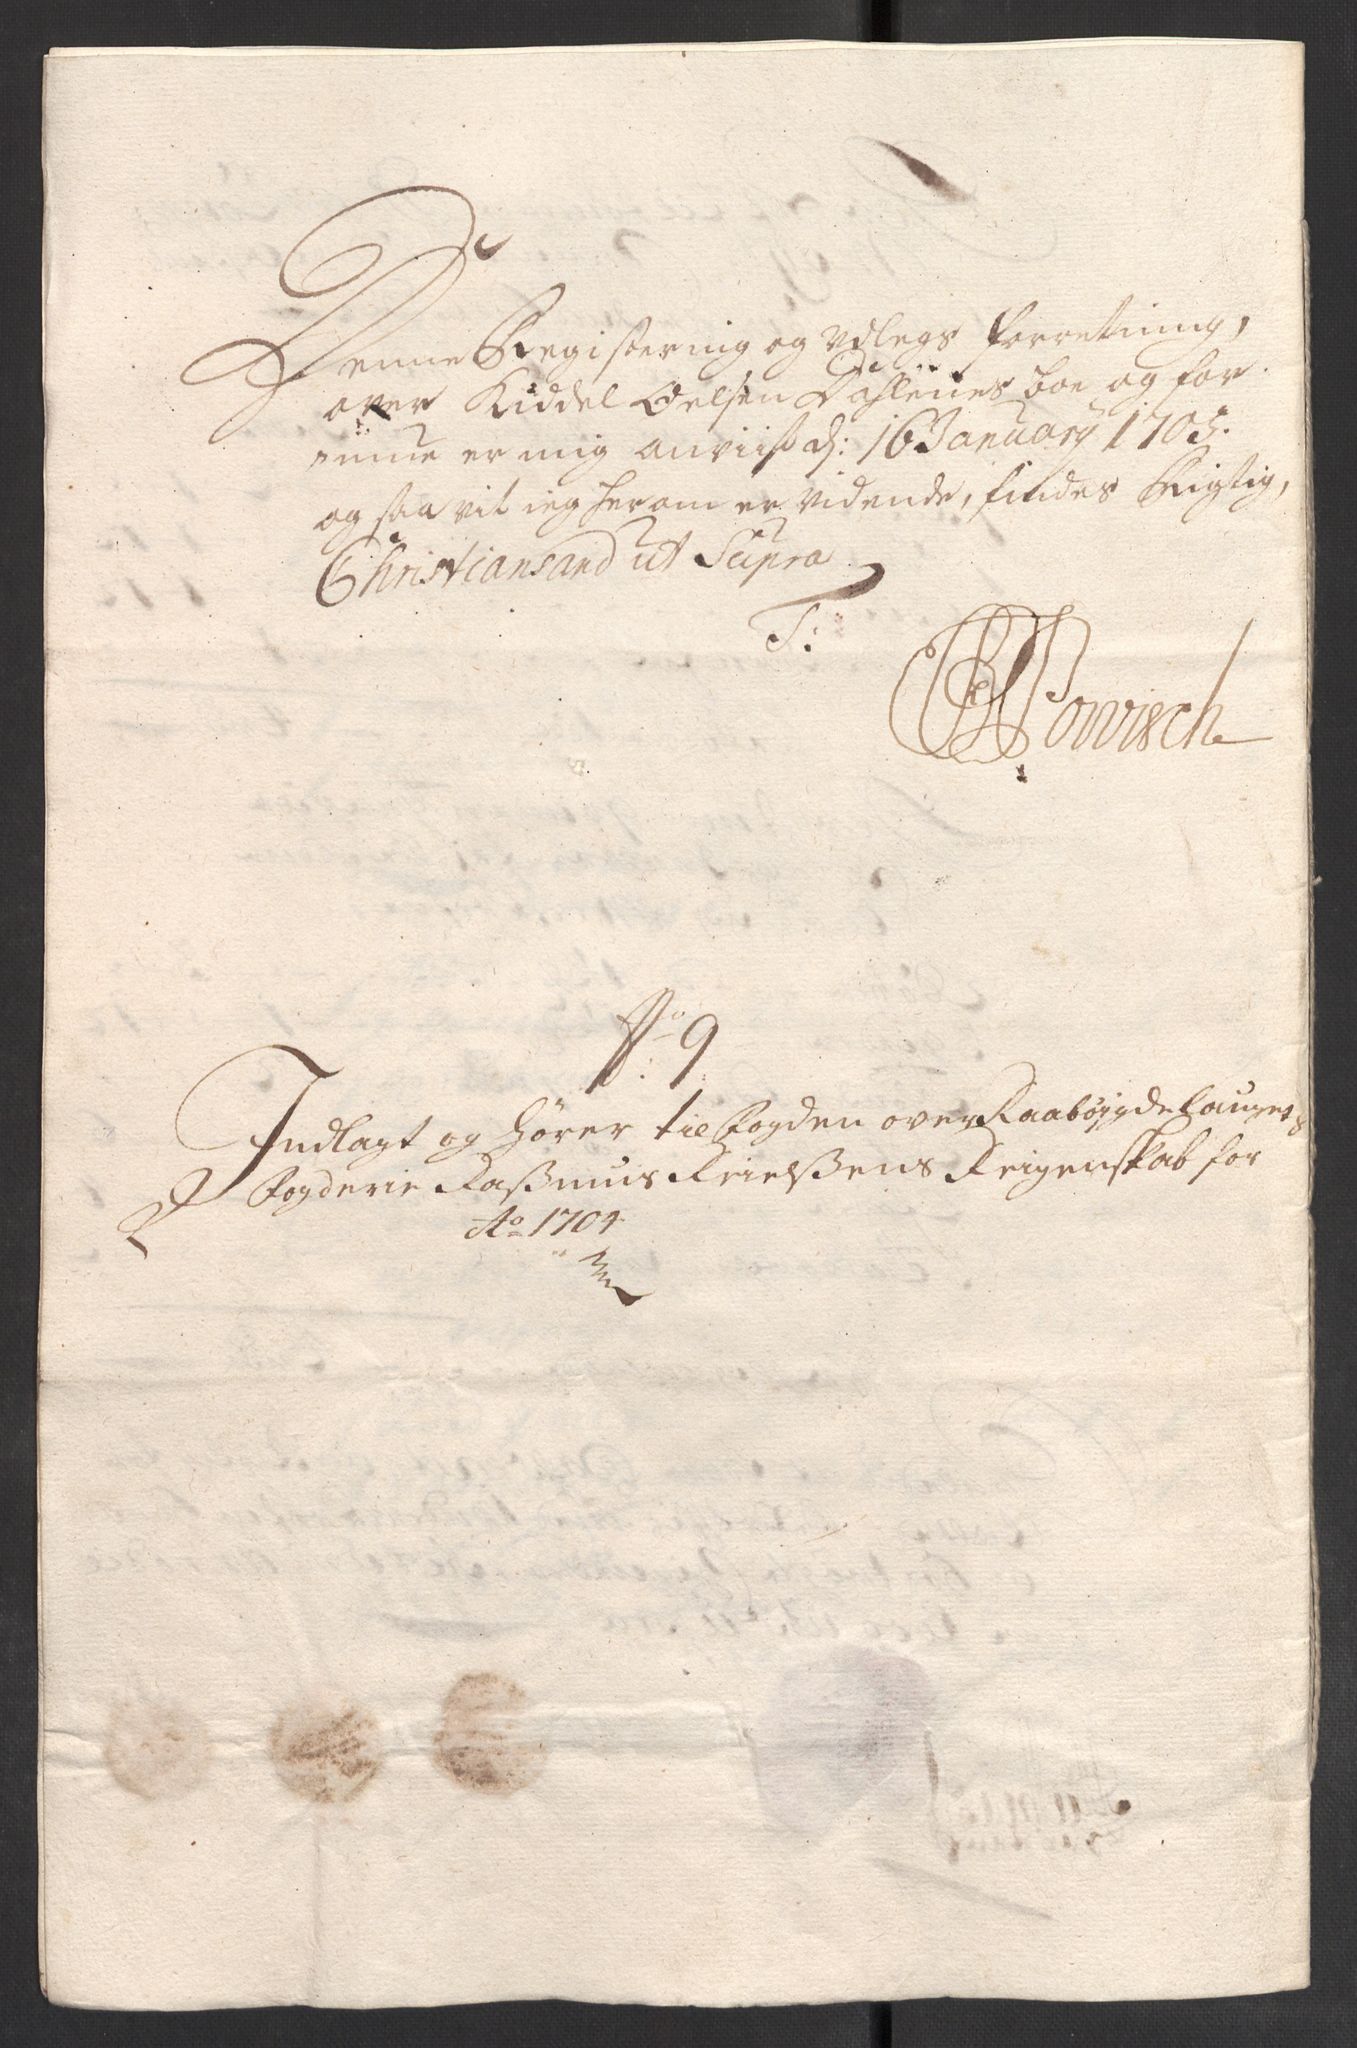 Denne Registering og Vdlegs forretning,
over Kiddel Oelsen Dahlenes boe og for
mue er mig anviist d: 16 January 1705.
og saa vit ieg herom er vidende, findes Rigtig,
Christiansand ut Supra
T:
Powisch
No 9
Indlagt og hører til Fogden over Raabøjgdelaugets
Fogderie Rasmus Keielsens Reigenskab for
Ao 1704